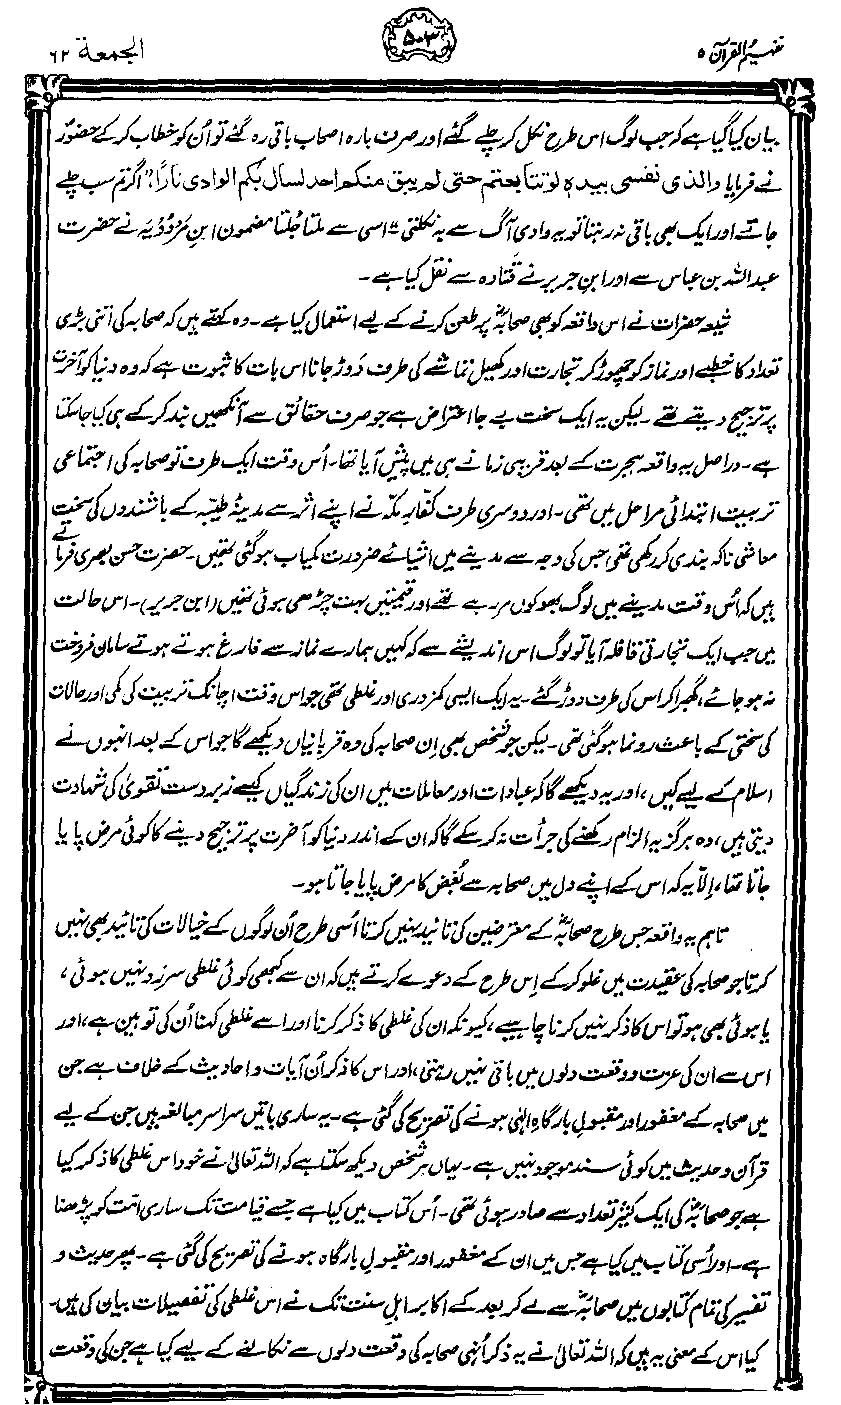 تفہیم القرآن ۵
۵۰۳
الجمعة ۶۲
بیان کیا گیا ہے کہ جب لوگ اس طرح نکل کر چلے گئے اور صرف بارہ اصحاب باقی رہ گئے تو اُن کو خطاب کر کے حضورؐ
نے فرمایا والذی نفسی بیدہ لو تتابعتم حتی لم یبق منکم احد لسال بکم الوادی نارًا، "اگر تم سب چلے
جاتے اور ایک بھی باقی نہ رہتا تو یہ وادی آگ سے بہ نکلتی"۔ اسی سے ملتا جُلتا مضمون ابنِ مَرْدُوْیَہ نے حضرت
عبداللہ بن عباس سے اور ابنِ جریر نے قَتادہ سے نقل کیا ہے۔
شیعہ حضرات نے اس واقعہ کو بھی صحابہؓ پر طعن کرنے کے لیے استعمال کیا ہے۔ وہ کہتے ہیں کہ صحابہ کی اتنی بڑی
تعداد کا خطبے اور نماز کو چھوڑ کر تجارت اور کھیل تماشے کی طرف دَوڑ جانا اس بات کا ثبوت ہے کہ وہ دنیا کو آخرت
پر ترجیح دیتے تھے۔ لیکن یہ ایک سخت بے جا اعتراض ہے جو صرف حقائق سے آنکھیں بند کر کے ہی کیا جا سکتا
ہے۔ دراصل یہ واقعہ ہجرت کے بعد قریبی زمانے ہی میں پیش آیا تھا۔ اُس وقت ایک طرف تو صحابہ کی اجتماعی
تربیت ابتدائی مراحل میں تھی۔ اور دوسری طرف کفارِ مکہ نے اپنے اثر سے مدینۂ طیبہ کے باشندوں کی سخت
معاشی ناکہ بندی کر رکھی تھی جس کی وجہ سے مدینے میں اشیائے ضرورت کمیاب ہو گئی تھیں۔ حضرت حسن بصری فرماتے
ہیں کہ اُس وقت مدینے میں لوگ بھوکوں مر رہے تھے اور قیمتیں بہت چڑھی ہوئی تھیں (ابن جریر)۔ اس حالت
میں جب ایک تجارتی قافلہ آیا تو لوگ اس اندیشے سے کہ کہیں ہمارے نماز سے فارغ ہوتے ہوتے سامان فروخت
نہ ہو جائے، گھبرا کر اس کی طرف دوڑ گئے۔ یہ ایک ایسی کمزوری اور غلطی تھی جو اس وقت اچانک تربیت کی کمی اور حالات
کی سختی کے باعث رونما ہو گئی تھی۔ لیکن جو شخص بھی اِن صحابہ کی وہ قربانیاں دیکھے گا جو اس کے بعد انہوں نے
اسلام کے لیے کیں، اور یہ دیکھے گا کہ عبادات اور معاملات میں ان کی زندگیاں کیسے زبردست تقویٰ کی شہادت
دیتی ہیں، وہ ہرگز یہ الزام رکھنے کی جرأت نہ کر سکے گا کہ ان کے اندر دنیا کو آخرت پر ترجیح دینے کا کوئی مرض پایا
جاتا تھا، اِلّا یہ کہ اس کے اپنے دل میں صحابہ سے بُغض کا مرض پایا جاتا ہو۔
تاہم یہ واقعہ جس طرح صحابہؓ کے معترضین کی تائید نہیں کرتا اُسی طرح اُن لوگوں کے خیالات کی تائید بھی نہیں
کرتا جو صحابہ کی عقیدت میں غلو کر کے اِس طرح کے دعوے کرتے ہیں کہ ان سے کبھی کوئی غلطی سرزد نہیں ہوئی،
یا ہوئی بھی ہو تو اس کا ذکر نہیں کرنا چاہیے، کیونکہ ان کی غلطی کا ذکر کرنا اور اسے غلطی کہنا اُن کی توہین ہے، اور
اس سے ان کی عزت و وقعت دلوں میں باقی نہیں رہتی، اور اس کا ذکر اُن آیات و احادیث کے خلاف ہے جن
میں صحابہ کے مغفور اور مقبولِ بارگاہِ الٰہی ہونے کی تصریح کی گئی ہے۔ یہ ساری باتیں سراسر مبالغہ ہیں جن کے لیے
قرآن و حدیث میں کوئی سند موجود نہیں ہے۔ یہاں ہر شخص دیکھ سکتا ہے کہ اللہ تعالیٰ نے خود اس غلطی کا ذکر کیا
ہے جو صحابہؓ کی ایک کثیر تعداد سے صادر ہوئی تھی۔ اُس کتاب میں کیا ہے جسے قیامت تک ساری امت کو پڑھنا
ہے۔ اور اُسی کتاب میں کیا ہے جس میں ان کے مغفور اور مقبولِ بارگاہ ہونے کی تصریح کی گئی ہے۔ پھر حدیث و
تفسیر کی تمام کتابوں میں صحابہؓ سے لے کر بعد کے اکابر اہلِ سنت تک نے اس غلطی کی تفصیلات بیان کی ہیں۔
کیا اس کے معنی یہ ہیں کہ اللہ تعالیٰ نے یہ ذکر اُنہی صحابہ کی وقعت دلوں سے نکالنے کے لیے کیا ہے جن کی وقعت